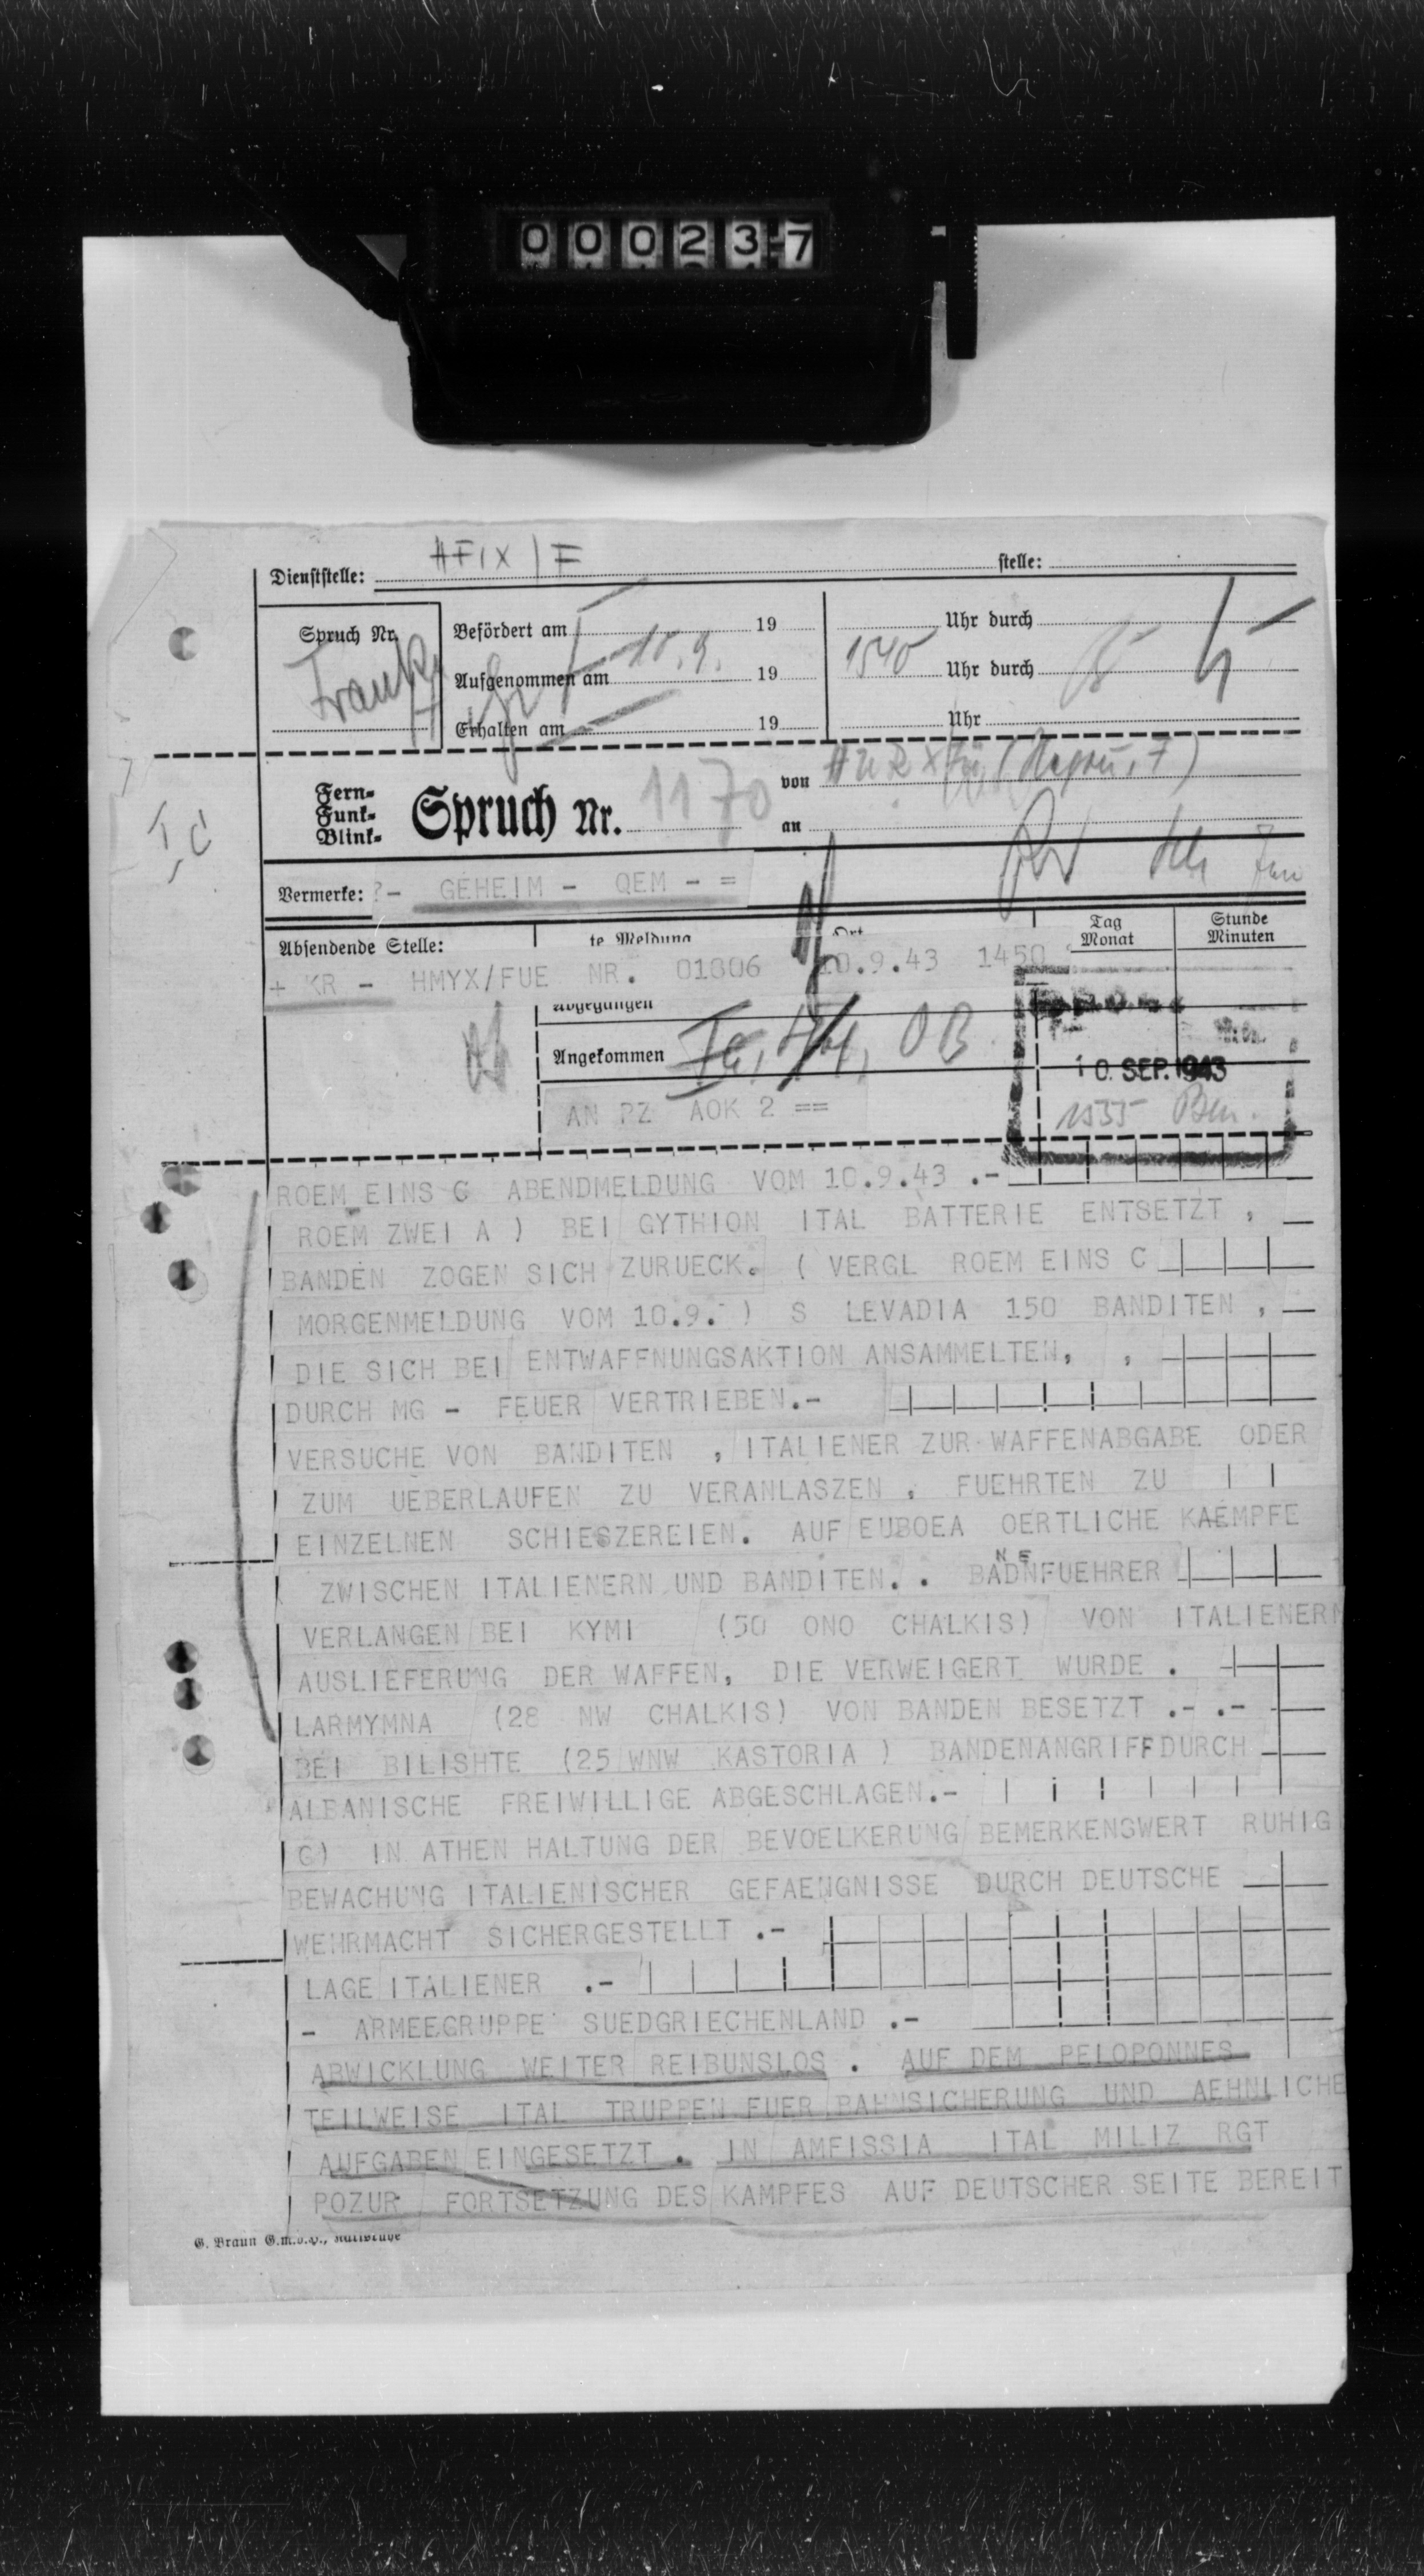 000237
HFIX / F
Dienststelle: stelle:
Spruch Nr. Befördert am 19 Uhr durch
Aufgenommen am 10.9. 19 1540 Uhr durch
Erhalten am 19 Uhr
Fern-
Funk-
Blink-
Spruch Nr. 1170 von
an
Ic
Vermerke: ?- GEHEIM - QEM - =
Absendende Stelle: te Meldung Ort Tag Monat Stunde Minuten
+ KR - HMYX/FUE NR. 01806 10.9.43 1450
Abgegangen
Angekommen Ia, OB
10. SEP. 1943
AN PZ AOK 2 ==
1535
ROEM EINS C ABENDMELDUNG VOM 10.9.43 .-
ROEM ZWEI A ) BEI GYTHION ITAL BATTERIE ENTSETZT ,
BANDEN ZOGEN SICH ZURUECK. ( VERGL ROEM EINS C
MORGENMELDUNG VOM 10.9. ) S LEVADIA 150 BANDITEN ,
DIE SICH BEI ENTWAFFNUNGSAKTION ANSAMMELTEN, ,
DURCH MG - FEUER VERTRIEBEN.-
VERSUCHE VON BANDITEN , ITALIENER ZUR WAFFENABGABE ODER
ZUM UEBERLAUFEN ZU VERANLASZEN , FUEHRTEN ZU
EINZELNEN SCHIESZEREIEN. AUF EUBOEA OERTLICHE KAEMPFE
NE
ZWISCHEN ITALIENERN UND BANDITEN. . BADNFUEHRER
VERLANGEN BEI KYMI (50 ONO CHALKIS) VON ITALIENERN
AUSLIEFERUNG DER WAFFEN, DIE VERWEIGERT WURDE .
LARMYMNA (28 NW CHALKIS) VON BANDEN BESETZT .- .-
BEI BILISHTE (25 WNW KASTORIA ) BANDENANGRIFF DURCH
ALBANISCHE FREIWILLIGE ABGESCHLAGEN.-
G) IN ATHEN HALTUNG DER BEVOELKERUNG BEMERKENSWERT RUHIG
BEWACHUNG ITALIENISCHER GEFAENGNISSE DURCH DEUTSCHE
WEHRMACHT SICHERGESTELLT .-
LAGE ITALIENER .-
- ARMEEGRUPPE SUEDGRIECHENLAND .-
ABWICKLUNG WEITER REIBUNSLOS . AUF DEM PELOPONNES
TEILWEISE ITAL TRUPPEN FUER BAHNSICHERUNG UND AEHNLICHE
AUFGABEN EINGESETZT . IN AMFISSIA ITAL MILIZ RGT
POZUR FORTSETZUNG DES KAMPFES AUF DEUTSCHER SEITE BEREIT
G. Braun G.m.b.H., Karlsruhe